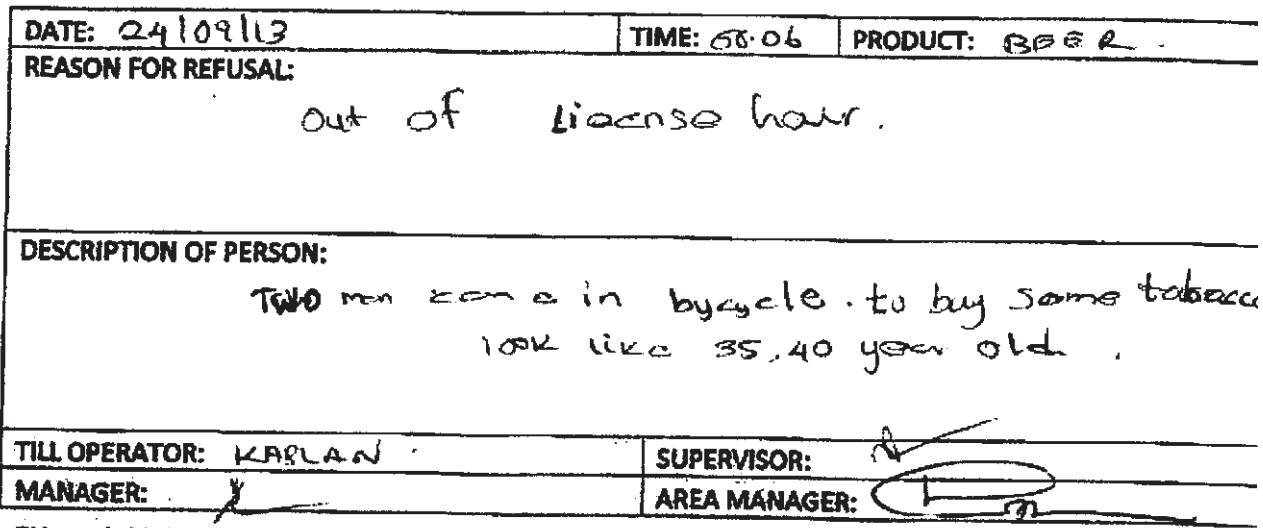 DATE: 24/09/13 TIME: 06 PRODUCT: BEER.
REASON FOR REFUSAL:
Out of License hour.
DESCRIPTION OF PERSON:
TWO men come in bycycle. to buy some tobacco
look like 35,40 year old.
TILL OPERATOR: KAPLAN SUPERVISOR:
MANAGER: AREA MANAGER: